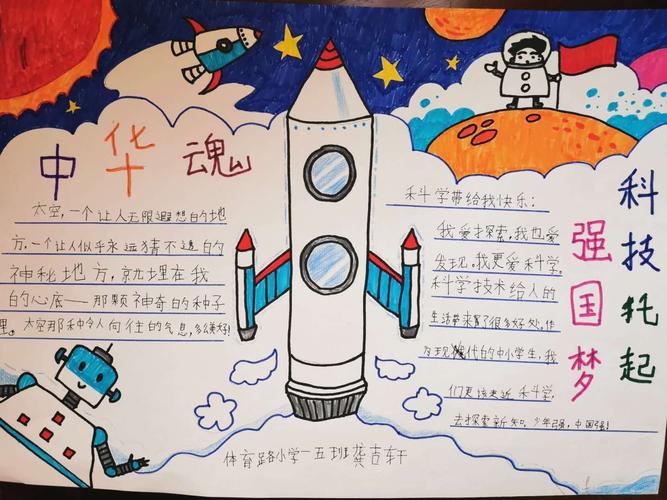 中华魂
太空,一个让人无限遐想的地
方,一个让人似乎永远猜不透的
神秘地方,就埋在我
的心底——那颗神奇的种子
里。太空那种令人向往的气息,多么美好!
科学带给我快乐:
我爱探索,我也爱
发现,我更爱科学,
科学技术给人的
生活带来了很多好处,作
为现代的中小学生,我
们更该走近科学,
去探索新知。少年强,中国强!
科技托起
强国梦
体育路小学一五班龚吉轩